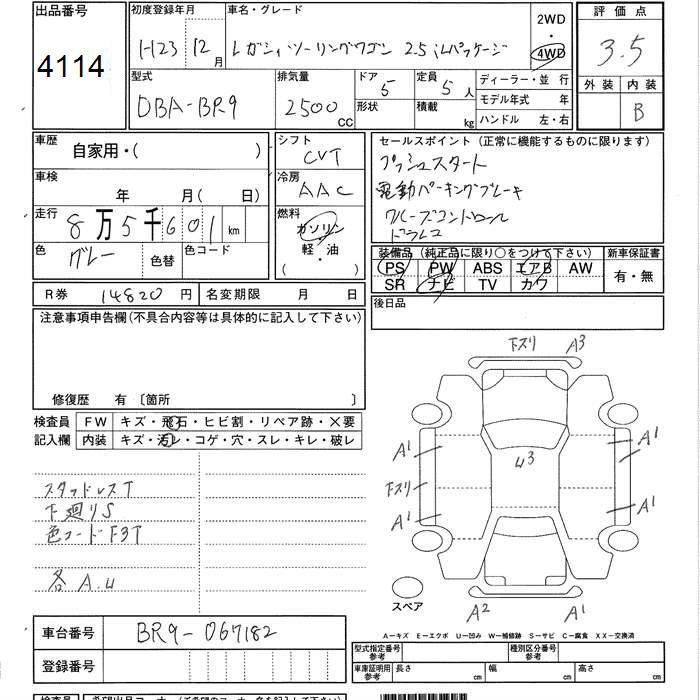 出品番号
4114
初度登録年月
H23 12月
車名・グレード
レガシィツーリングワゴン 2.5 iLパッケージ
2WD
・
4WD
評価点
3.5
外装 内装
B
型式
DBA-BR9
排気量
2500 CC
ドア 5
形状
定員 5人
積載 kg
ディーラー・並行
モデル年式 年
ハンドル 左・右
車歴
自家用・( )
シフト
CVT
セールスポイント (正常に機能するものに限ります)
プッシュスタート
電動パーキングブレーキ
クルーズコントロール
ドラレコ
車検
年 月( 日)
冷房
AAC
走行
8万5千601 km
燃料
ガソリン
軽・油
( )
色
グレー
色替
色コード
装備品 (純正品に限り○をつけて下さい)
PS PW ABS エアB AW
SR ナビ TV カワ
新車保証書
有・無
R券 14820円
名変期限 月 日
後日品
注意事項申告欄(不具合内容等は具体的に記入して下さい)
修復歴 有 〔箇所 〕
検査員
記入欄
FW キズ・飛石・ヒビ割・リペア跡・×要
内装 キズ・汚レ・コゲ・穴・スレ・キレ・破レ
スタッドレスT
下廻りS
色コードF3T
各 A.U
下スリ A3
A1 A1
U3
下スリ
A1 A1
A2 A1
スペア
車台番号
BR9-067182
登録番号
A-キズ E-エクボ U-凹み W-補修跡 S-サビ C-腐食 XX-交換済
型式指定番号
参考
種別区分番号
参考
車庫証明用
参考
長さ cm 幅 cm 高さ cm